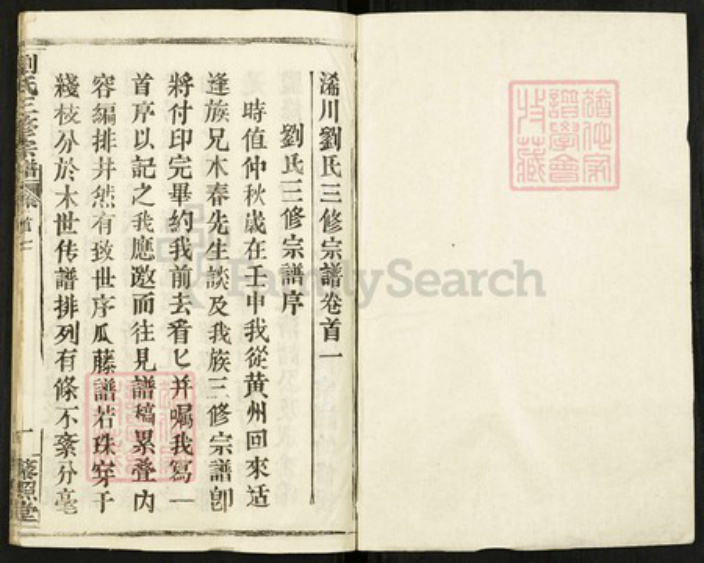 濰川劉氏三修宗譜卷首一
劉氏三修宗譜序
時值仲秋歲在壬申我從黄州回來适
逢族兄木春先生談及我族三修宗譜卽
將付印完畢約我前去看匕并嘱我寫一
首序以記之我應邀而往見譜稿累叠内
容編排井然有致世序瓜藤譜若珠穿于
綫枝分於木世传譜排列有條不紊分毫
劉氏三修宗譜
卷首一
一
藜照堂
FamilySearch
譜學會
收藏